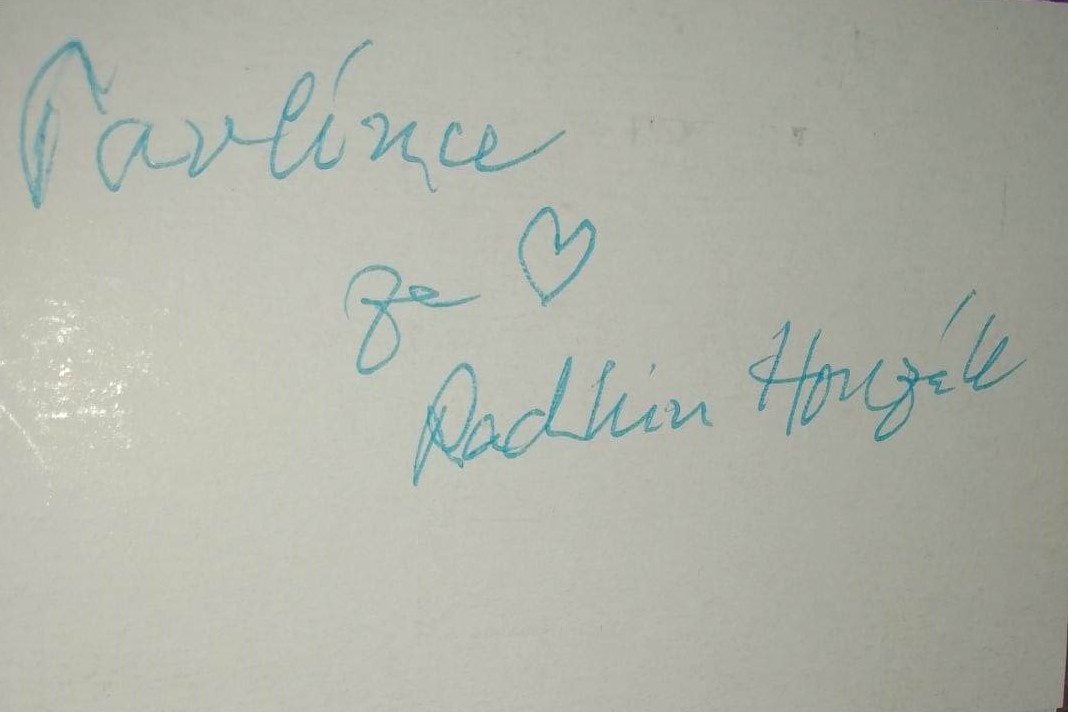 Pavlínce
ze ♡
Radkin Honzák